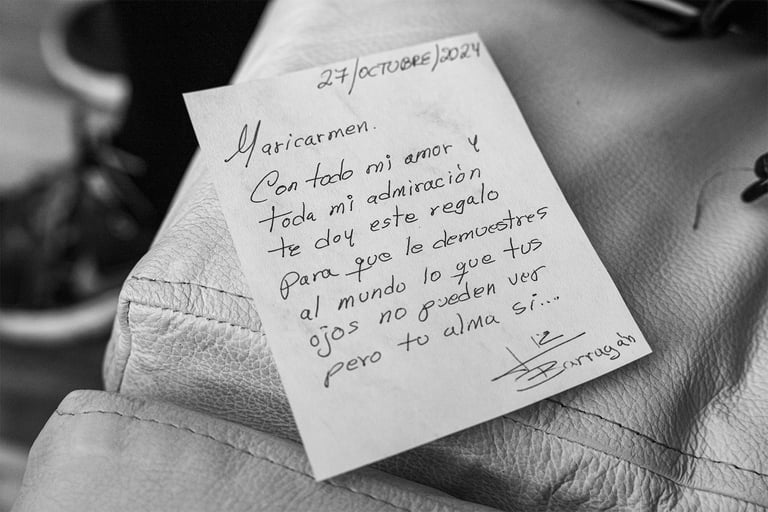 27/OCTUBRE/2024
Maricarmen.
Con todo mi amor y
toda mi admiración
te doy este regalo
para que le demuestres
al mundo lo que tus
ojos no pueden ver
pero tu alma si...
Liz
Barragán